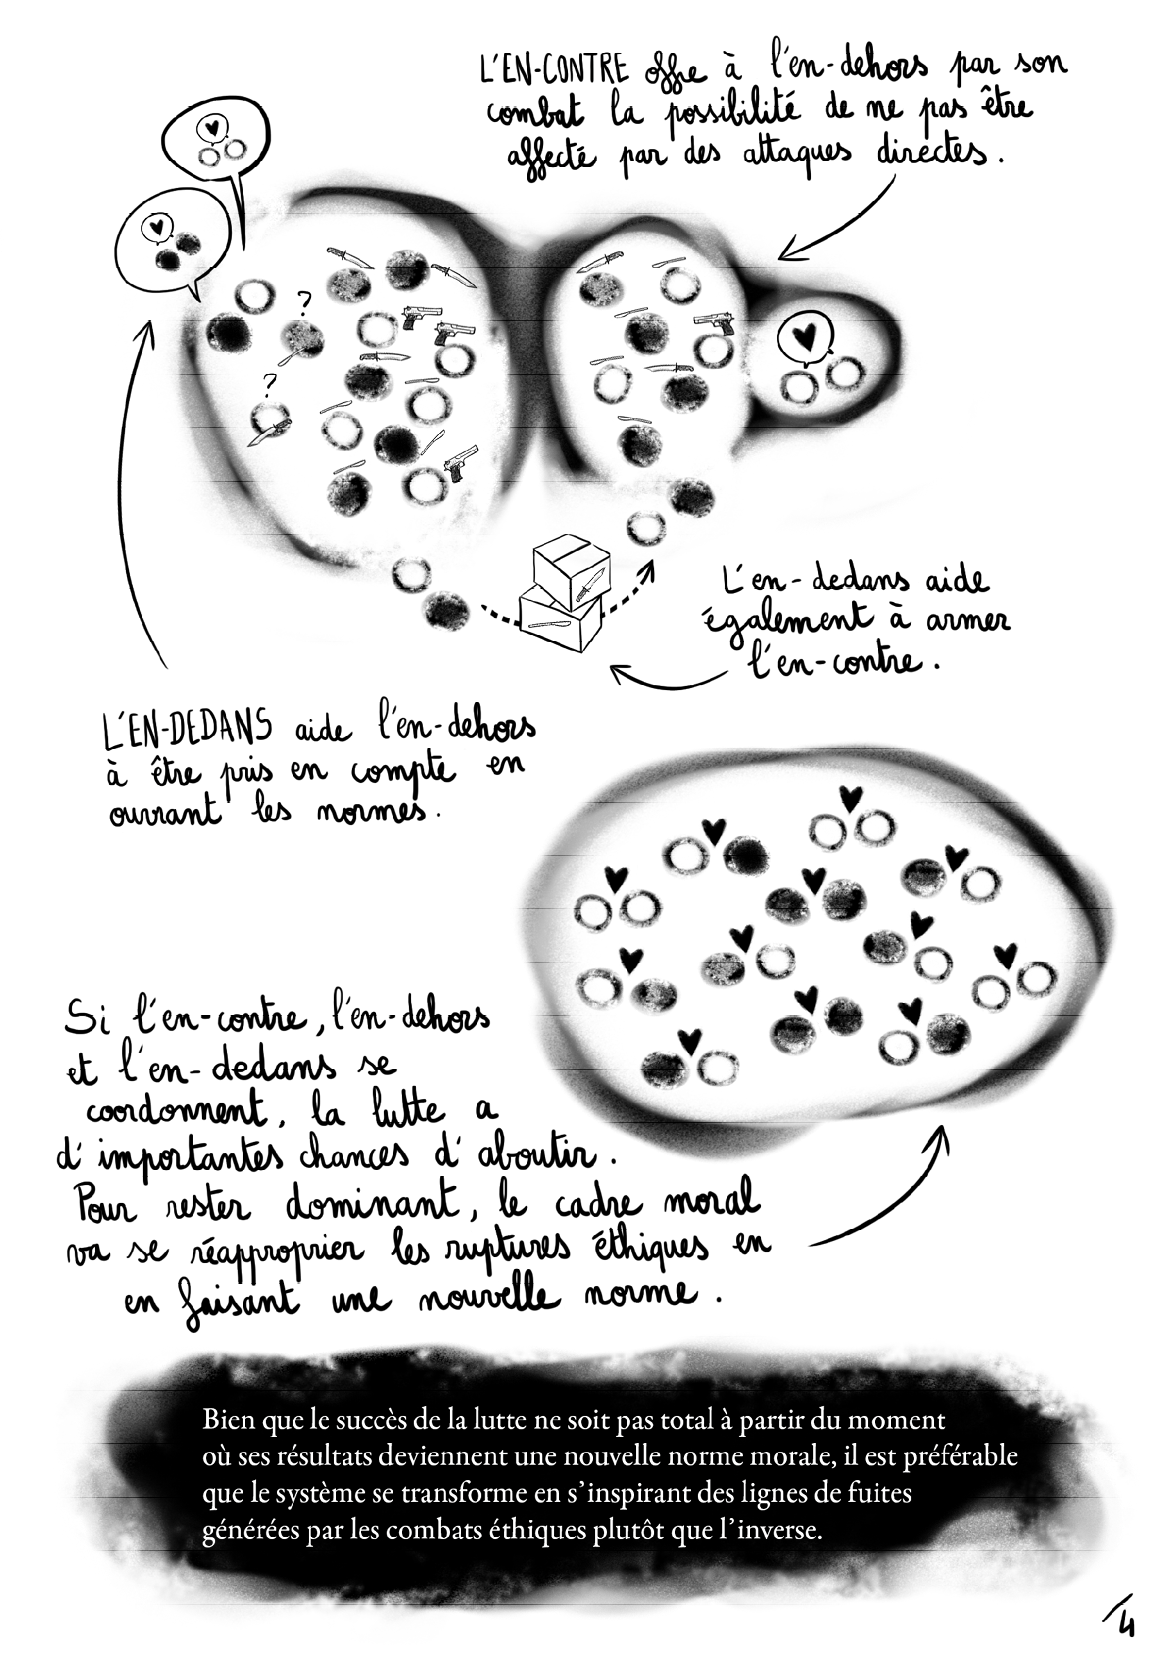 L'EN-CONTRE offre à l'en-dehors par son
combat la possibilité de ne pas être
affecté par des attaques directes.
?
?
L'en-dedans aide
également à armer
l'en-contre.
L'EN-DEDANS aide l'en-dehors
à être pris en compte en
ouvrant les normes.
Si l'en-contre, l'en-dehors
et l'en-dedans se
coordonnent, la lutte a
d'importantes chances d'aboutir.
Pour rester dominant, le cadre moral
va se réapproprier les ruptures éthiques en
en faisant une nouvelle norme.
Bien que le succès de la lutte ne soit pas total à partir du moment
où ses résultats deviennent une nouvelle norme morale, il est préférable
que le système se transforme en s'inspirant des lignes de fuites
générées par les combats éthiques plutôt que l'inverse.